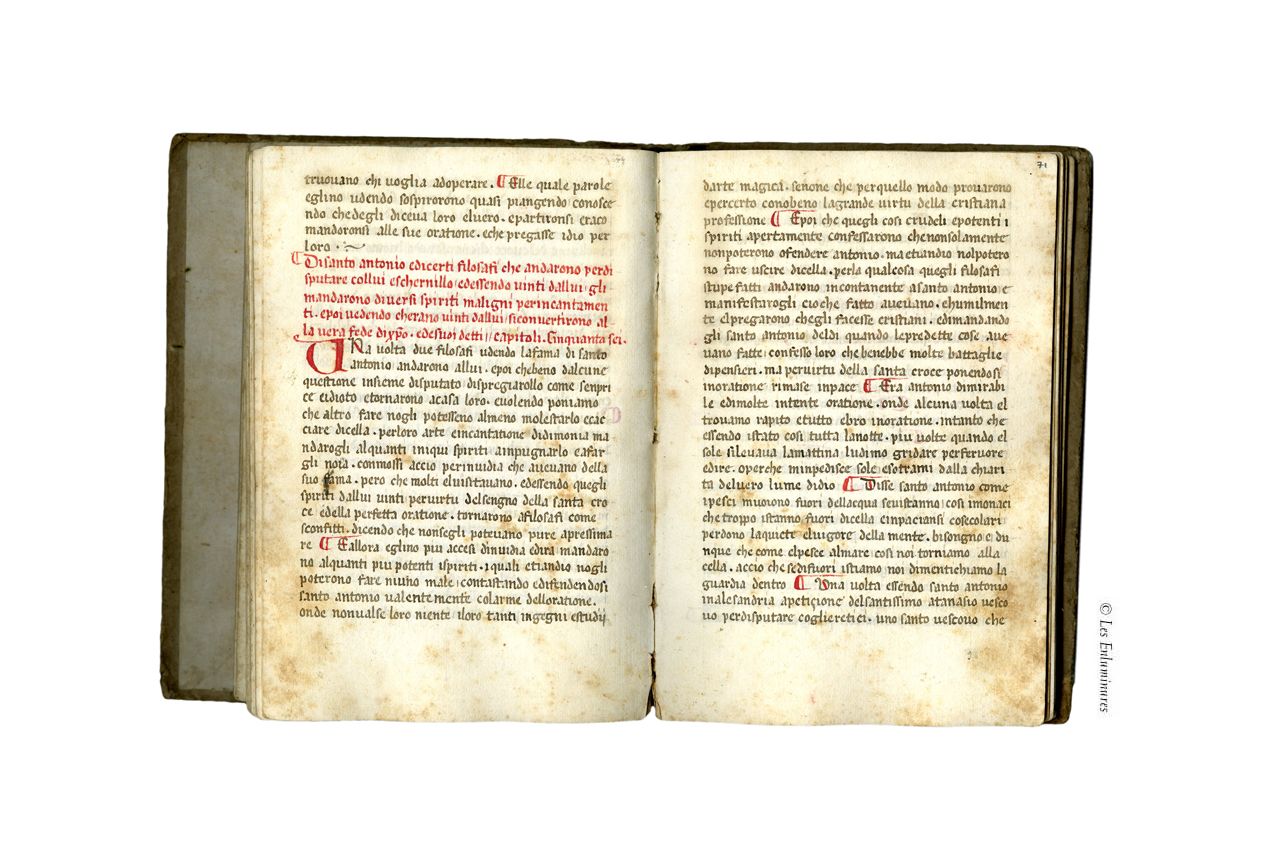 truovano chi voglia adoperare. ¶ Elle quale parole
eglino udendo sospirorono quasi piangendo conosce
ndo chedegli diceva loro eluero. epartironsi eraco
mandoronsi alle sue oratione. eche pregasse idio per
loro.
¶ Disanto antonio edicerti filosafi che andarono perdi
sputare collui eschernillo edessendo uinti dallui gli
mandarono diuersi spiriti maligni perincantamen
ti. epoi uedendo cherano uinti dallui siconuertirono al
la uera fede dixpo. edesuoi detti capitoli. Cinquanta sei.
Una uolta due filosafi udendo lafama di santo
antonio andarono allui. epoi chebeno dalcune
questione insieme disputato dispregiarollo come senpri
ce eidioto etornarono acasa loro. euolendo poniamo
che altro fare nogli potesseno almeno molestarlo ecac
ciare dicella. perloro arte eincantatione didimonia ma
ndarogli alquanti iniqui spiriti ainpugnarlo eafar
gli noia. conmossi accio perinuidia che aueuano della
suo fama. pero che molti eluisitauano. edessendo quegli
spiriti dallui uinti peruirtu delsengno della santa cro
ce edella perfetta oratione. tornarono afilosafi come
sconfitti. dicendo che nonsegli poteuano pure apressima
re ¶ Eallora eglino piu accesi dinuidia edira mandaro
no alquanti piu potenti ispiriti. iquali etiandio nogli
poterono fare niuno male contastando edifendendosi
santo antonio ualentemente colarme delloratione.
onde nonualse loro niente iloro tanti ingegni estudij
71
darte magica. senone che perquello modo prouarono
epercerto conobeno lagrande uirtu della cristiana
professione ¶ Epoi che quegli cosi crudeli epotenti i
spiriti apertamente confessarono chenonsolamente
nonpoterono ofendere antonio. maetiandio nolpotero
no fare uscire dicella. perla qualcosa quegli filosafi
stupefatti andarono incontanente asanto antonio e
manifestarogli cioche fatto aueuano. ehumilmen
te elpregarono chegli facesse cristiani. edimandando
gli santo antonio deldi quando lepredette cose aue
uano fatte confesso loro chebenebbe molte battaglie
dipensieri. ma peruirtu della santa croce ponendosi
inoratione rimase inpace ¶ Era antonio dimirabi
le edimolte intente oratione. onde alcuna uolta el
trouamo rapito etutto ebro inoratione. intanto che
essendo istato cosi tutta lanotte. piu uolte quando el
sole sileuaua lamattina ludimo gridare perferuore
edire. operche minpedisce sole esotrami dalla chiari
ta deluero lume didio ¶ Disse santo antonio come
ipesci muoiono fuori dellacqua seuistanno cosi imonaci
che troppo istanno fuori dicella einpaciansi cosecolari
perdono laquiete eluigore della mente. bisongno e du
nque che come elpesce almare cosi noi torniamo alla
cella. accio che sedifuori istiamo noi dimentichiamo la
guardia dentro ¶ Una uolta essendo santo antonio
inalesandria apetiçione delsantissimo atanasio uesco
uo perdisputare coglieretici. uno santo uescouo che
© Les Enluminures